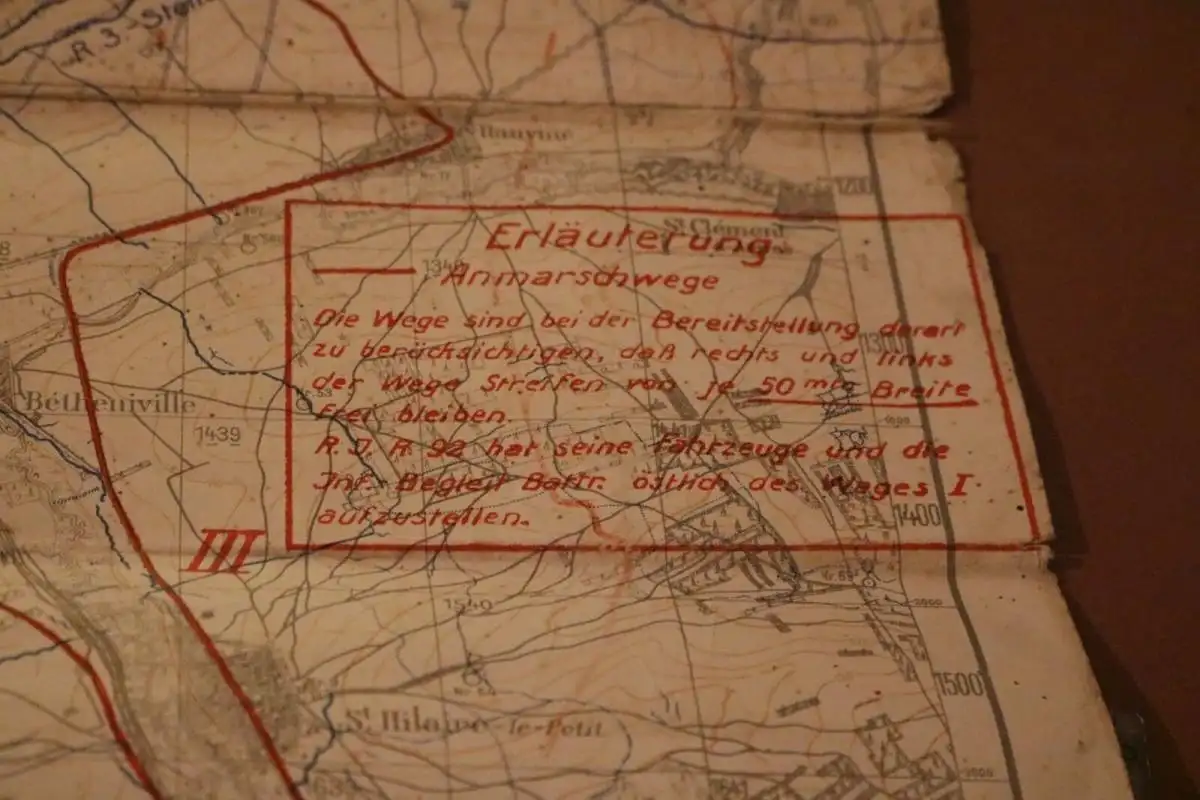 R. 3-
Hauviné
1200
St Clément
Erläuterung
Anmarschwege
Die Wege sind bei der Bereitstellung derart
1300
zu berücksichtigen, daß rechts und links
der Wege Streifen von je 50 mtr Breite
frei bleiben.
Bétheniville
1439
R. J. R 92 hat seine Fahrzeuge und die
Inf. Begleit Battr. östlich des Weges I
aufzustellen.
1400
III
1540
1500
St Hilaire-le-Petit